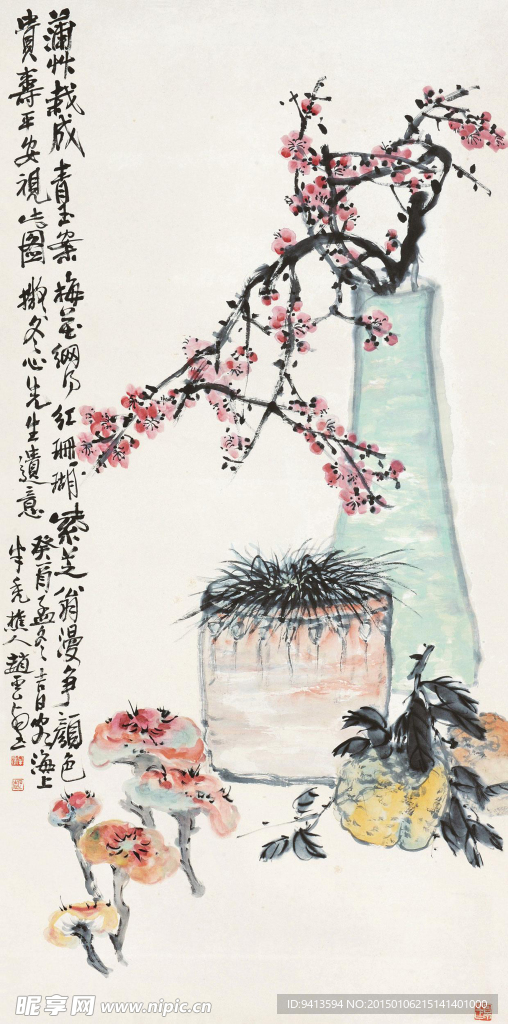 蒲草栽成青玉案梅花網乃紅珊瑚紫芝翁漫争顔色
貴壽平安視此圖擬冬心先生遺意
癸酉孟冬吉日客海上
半秃樵人趙雲壑
昵享网 www.nipic.cn
ID:9413594 NO:20150106215141401000